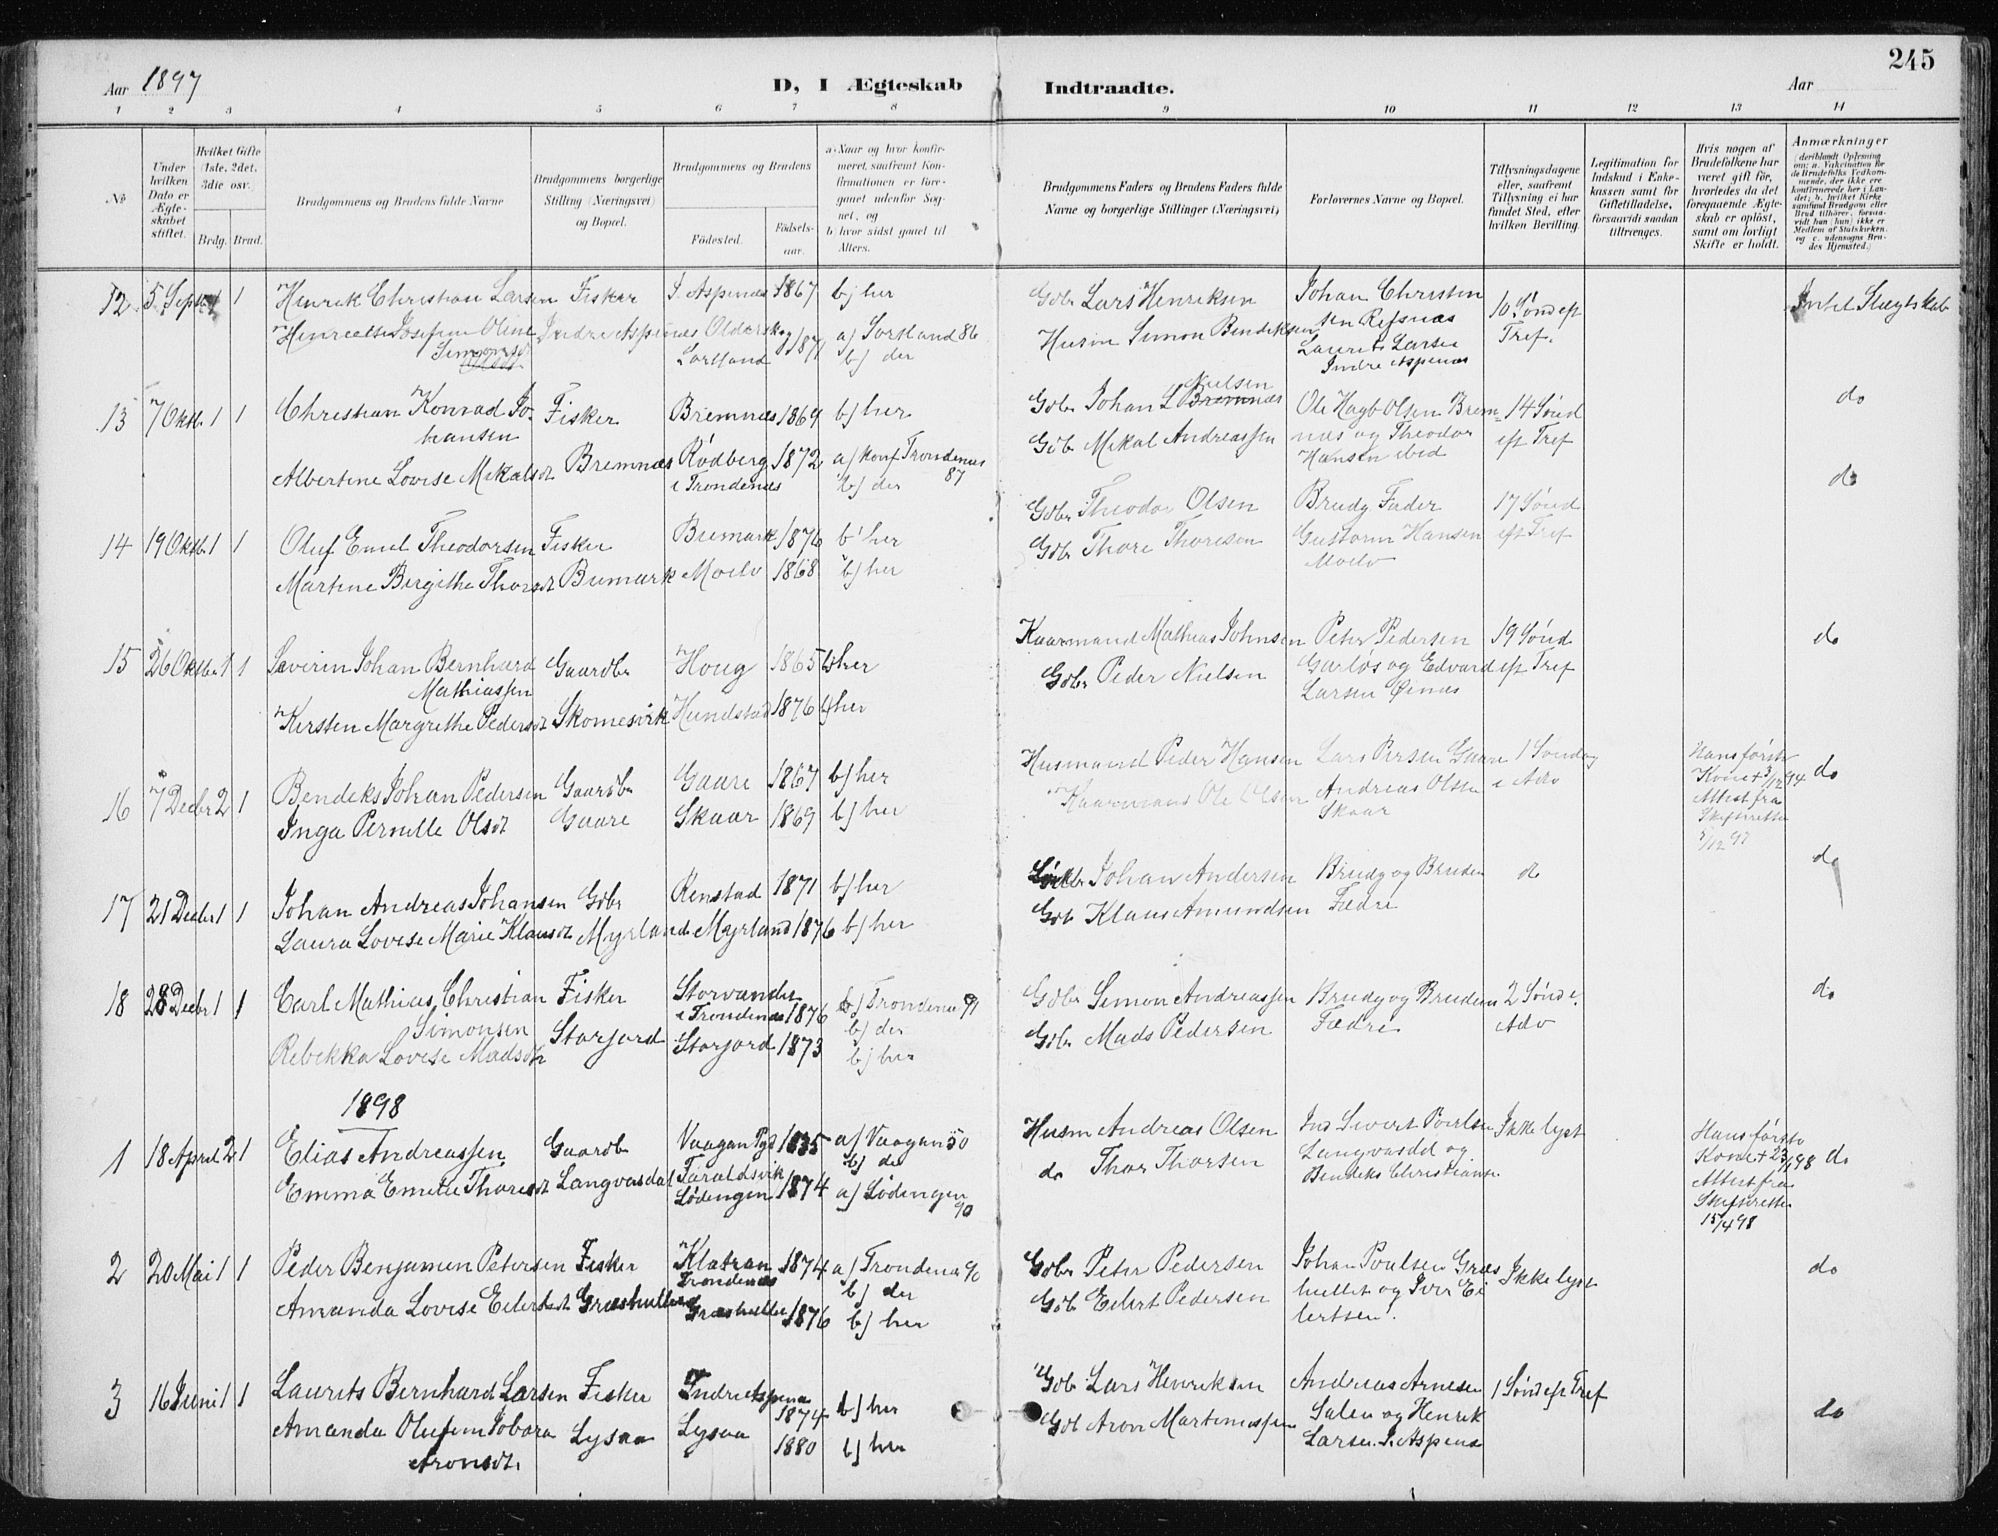 245
Aar 1897
D, I Ægteskab Indtraadte.
Aar
1 2 3 4 5 6 7 8 9 10 11 12 13 14
No
Under hvilken Dato er Ægteskabet stiftet.
Hvilket Gifte (1ste, 2det, 3die osv.)
Brdg. Brud.
Brudgommens og Brudens fulde Navne
Brudgommens borgerlige Stilling (Næringsvei) og Bopæl.
Brudgommens og Brudens
Fødested. Fødselsaar.
a) Naar og hvor konfirmeret, saafremt Konfirmationen er foregaaet udenfor Sognet, og
b) hvor sidst gaaet til Alters.
Brudgommens Faders og Brudens Faders fulde Navne og borgerlige Stillinger (Næringsvei)
Forlovernes Navne og Bopæl.
Tillysningsdagene eller, saafremt Tillysning ei har fundet Sted, efter hvilken Bevilling.
Legitimation for Indskud i Enkekassen samt for Giftetilladelse, forsaavidt saadan tiltrænges.
Hvis nogen af Brudefolkene har været gift før, hvorledes da det foregaaende Ægteskab er opløst, samt om lovligt Skifte er holdt.
Anmærkninger
12 5 Septb 1 1 Henrik Christian Larsen Fisker I. Aspenes 1867 b) her
Josefine Oline Indre Aspenes 1871 a) Sortland 86
Simonsdt Sortland b) der
Gbr Lars Henriksen Johan Christen
Husm Simon Bendiksen sen Refsnæs
Laurits Larsen
Indre Aspenes
10 Sønd eft
Tref.
Intet Slægtskab
13 7 Oktb 1 1 Christian Konrad Jo- Fisker Bremnæs 1869 b) her
hansen
Albertine Lovise Mikalsdt Bremnæs Rødberg 1872 a) konf Trondenes
i Trondenes b) der 87
Nielsen
Gbr Johan L Bremnæs Ole Hagb Olsen Brem- 14 Sønd do
Gbr Mikal Andreassen næs og Theodor eft Tref
Hansen ibid
do
14 19 Oktb 1 1 Oluf Emil Theodorsen Fisker Bremark 1876 b) her
Martine Birgithe Thorsdt Bumark Moelv 1868 b) her
Gbr Theodor Olsen Brudg Fader 17 Sønd
Gbr Thore Thoresen Guttorm Hansen eft Tref
Moelv
15 26 Oktbr 1 1 Severin Johan Bernhard Gaardbr Houg 1865 b) her
Mathiassen
Kirsten Margrethe Pedersdt Skomesvik Hundstad 1876 b) her
Kaarmand Mathias Johnsen Peter Pedersen 19 Sønd do
Gbr Peder Nielsen Garløs og Edvard eft Tref
Larsen Øines
16 7 Decbr 2 1 Bendeks Johan Pedersen Gaardbr Gaare 1867 b) her
Inga Pernille Olsdt Gaare Skaar 1869 b) her
Husmand Peder Hansen Lars Persen Gaare 1 Søndag
Kaarmand Ole Olsen Andreas Olsen i Adv
Skaar
Hans første
Kone + 3/12 94
Attest fra
Skifteretten
3/12 97
do
17 21 Decbr 1 1 Johan Andreas Johansen Gbr Renstad 1871 b) her
Laura Lovise Marie Klausdt Myrland Myrland 1876 b) her
Johan Andersen Brudg og Bruden do do
Gbr Klaus Amundsen Fædre
18 28 Decbr 1 1 Carl Mathias Christian Fisker Storvandet
Simonsen i Trondenes 1876 a) Trondenes 91
b) der
Rebekka Lovise Madsdtr Storjord Storjord 1873 b) her
Gbr Simon Andreassen Brudg og Brudens 2 Sønd i do
Gbr Mads Pedersen Fædre Adv
1898
1 18 April 2 1 Elias Andreassen Gaardbr Vaagan Pgd 1835 a) Vaagan 50
b) do
Emma Emilie Thorsdt Langvasdal Taraldsvik
Lødingen 1874 a) Lødingen
90
Husm Andreas Olsen Sivert Poulsen Ikke lyst
do Thor Thorsen Langvasdal og
Bendeks Christianse
Hans første
Kone + 23/1 98
Attest fra
Skifteretten
15/4 98
do
2 20 Mai 1 1 Peder Benjamin Petersen Fisker Klatran 1874 a) Trondenes 90
Trondenes b) der
Amanda Lovise Eilertsdt Græshullet Græshullet 1876 b) her
Gbr Peter Pedersen Johan Poulsen Græs Ikke lyst do
Gbr Eilert Pedersen hullet og Iver Ei
lertsen
3 16 Juni 1 1 Laurits Bernhard Larsen Fisker Indre Aspenes
1874 b) her
Amanda Olufine Tobora Lysaa Lysaa 1880 b) her
Aronsdt.
Gbr Lars Henriksen Andreas Arnesen 1 Sønd eft Tref
Gbr Aron Martinussen Salen og Henrik do
Larsen I. Aspenes